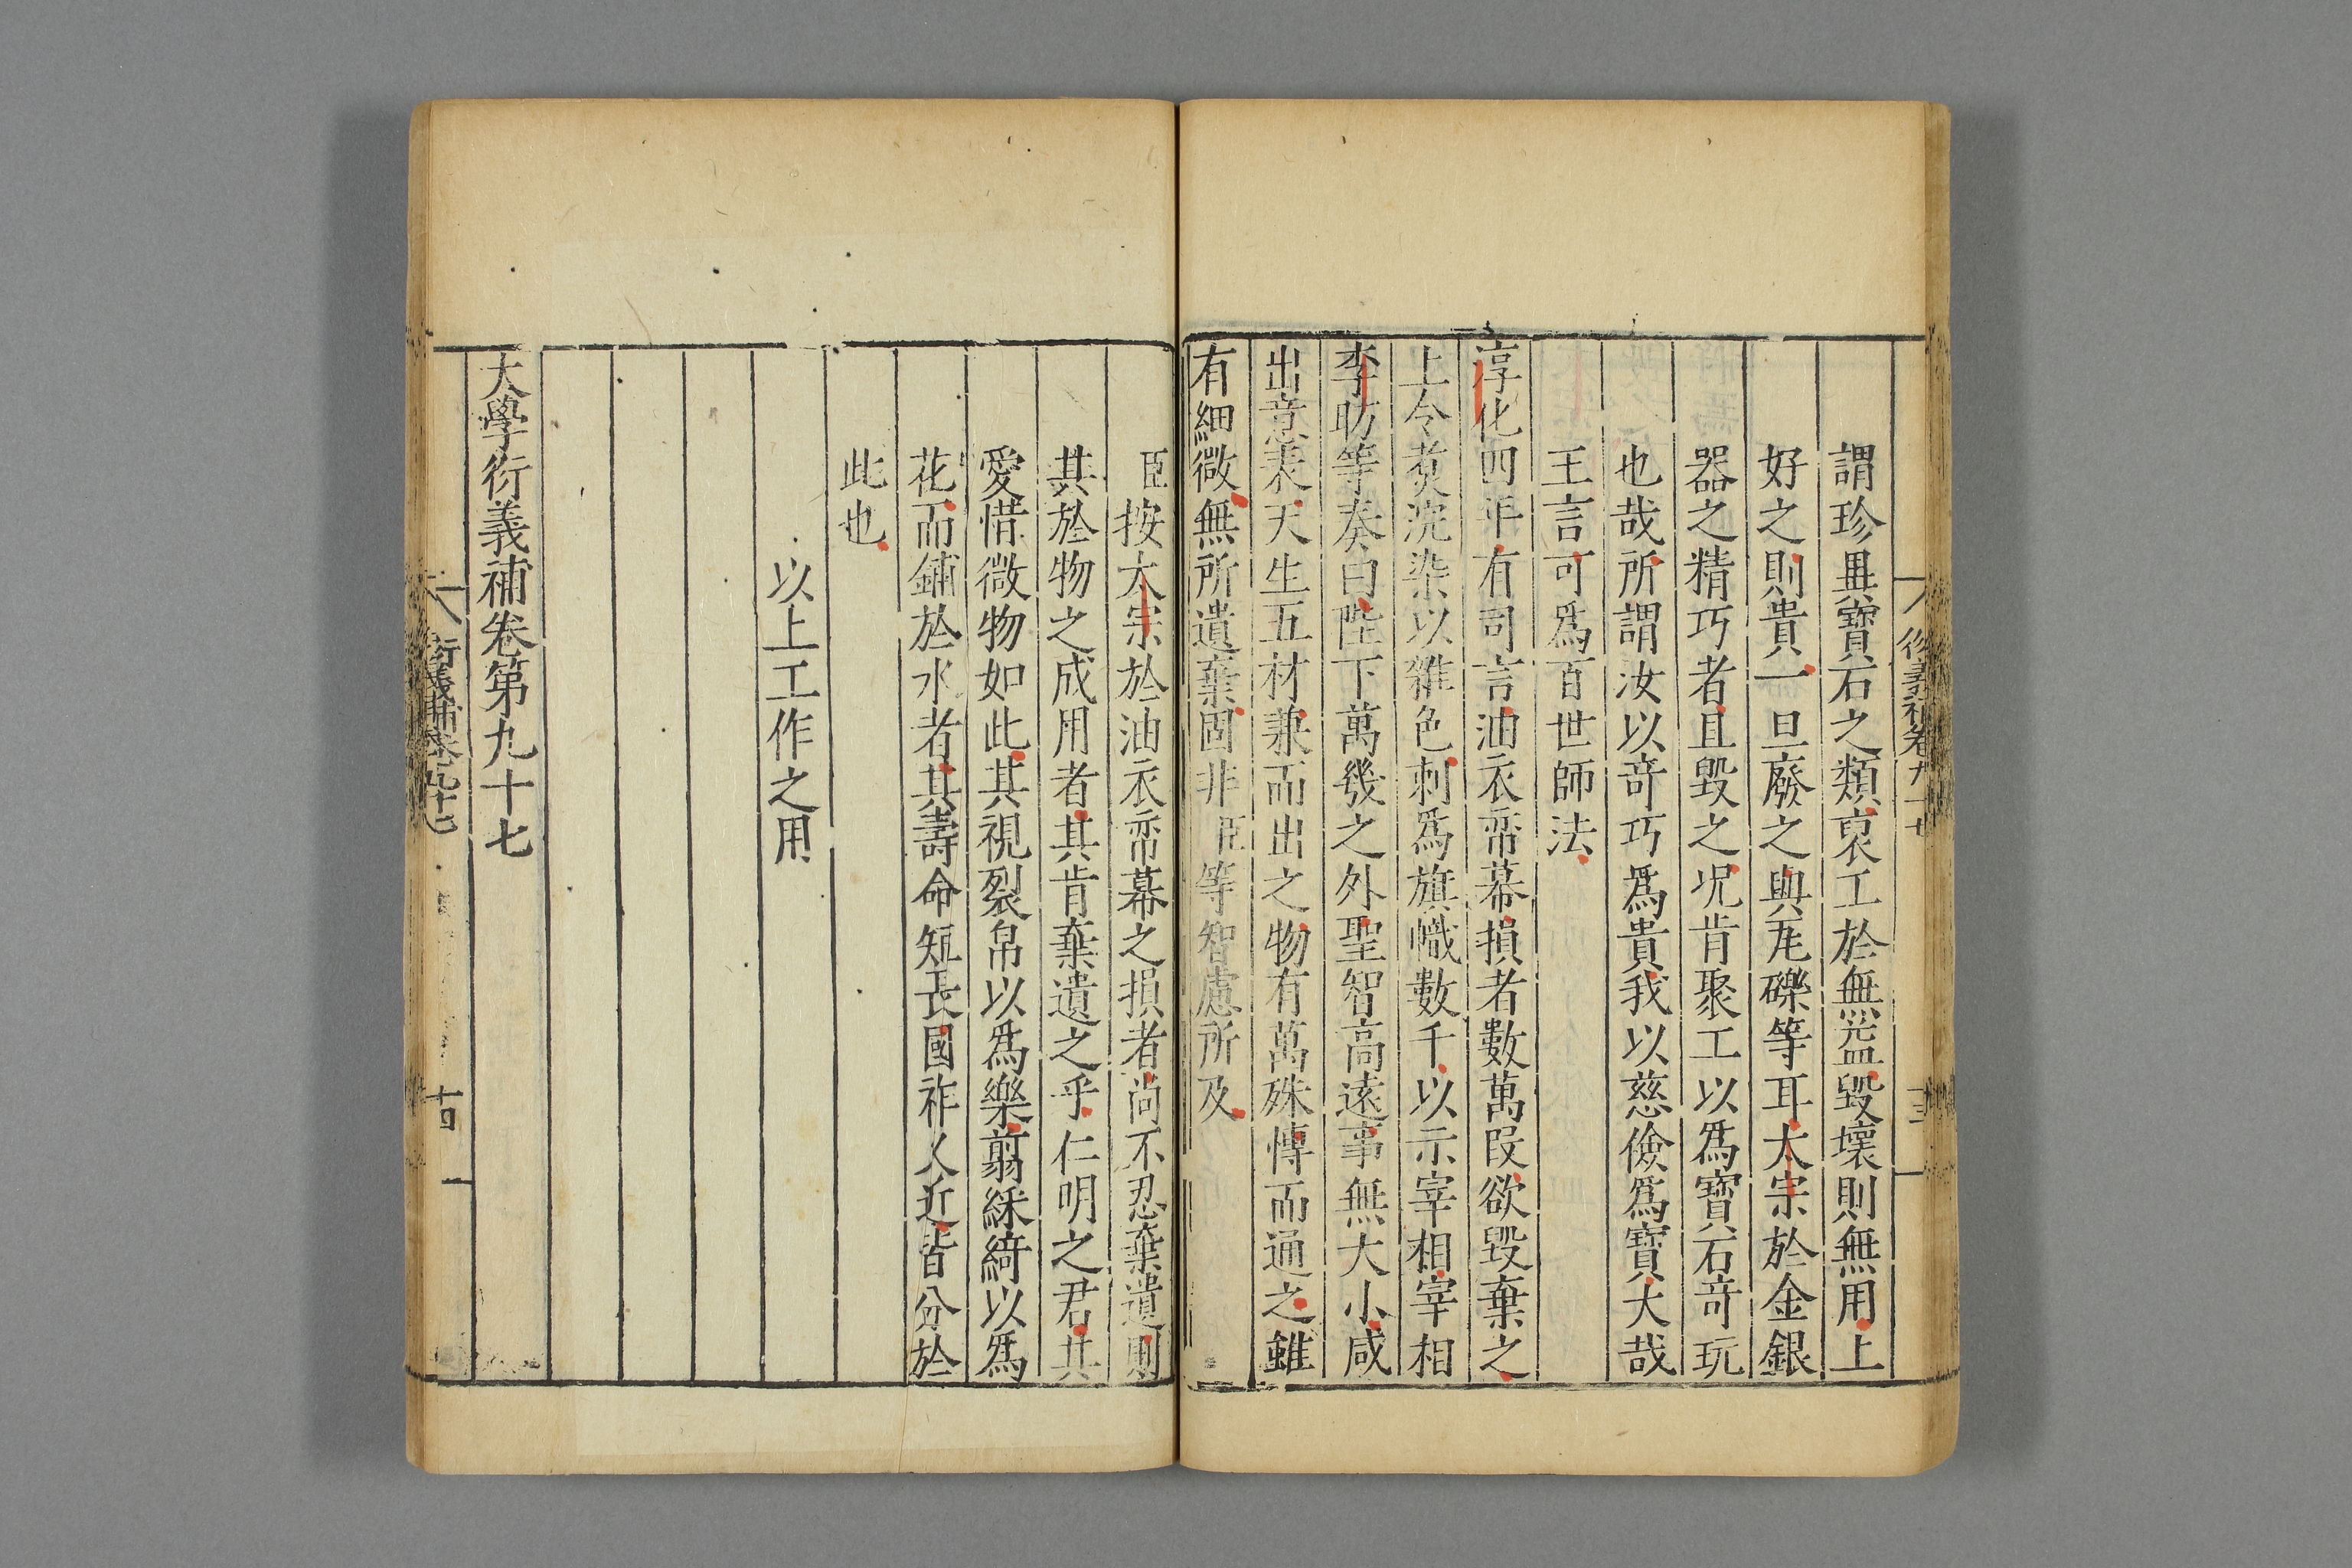 謂珍異寶石之類裒工於無益毀壞則無用上
好之則貴一旦廢之與瓦礫等耳太宗於金銀
器之精巧者且毀之况肯聚工以爲寶石竒玩
也哉所謂汝以竒巧爲貴我以慈儉爲寶大哉
王言可爲百世師法
淳化四年有司言油衣帟幕損者數萬段欲毀棄之
上令煑浣染以雜色刺爲旗幟數千以示宰相宰相
李昉等奏曰陛下萬幾之外聖智高遠事無大小咸
出意表天生五材兼而出之物有萬殊慱而通之雖
有細微無所遺棄固非臣等智慮所及
臣按太宗於油衣帟幕之損者尚不忍棄遺則
其於物之成用者其肯棄遺之乎仁明之君其
愛惜微物如此其視裂帛以爲樂翦綵綺以爲
花而鋪於水者其壽命短長國祚久近皆分於
此也
以上工作之用
大學衍義補卷第九十七
衍義補卷九十七
十四